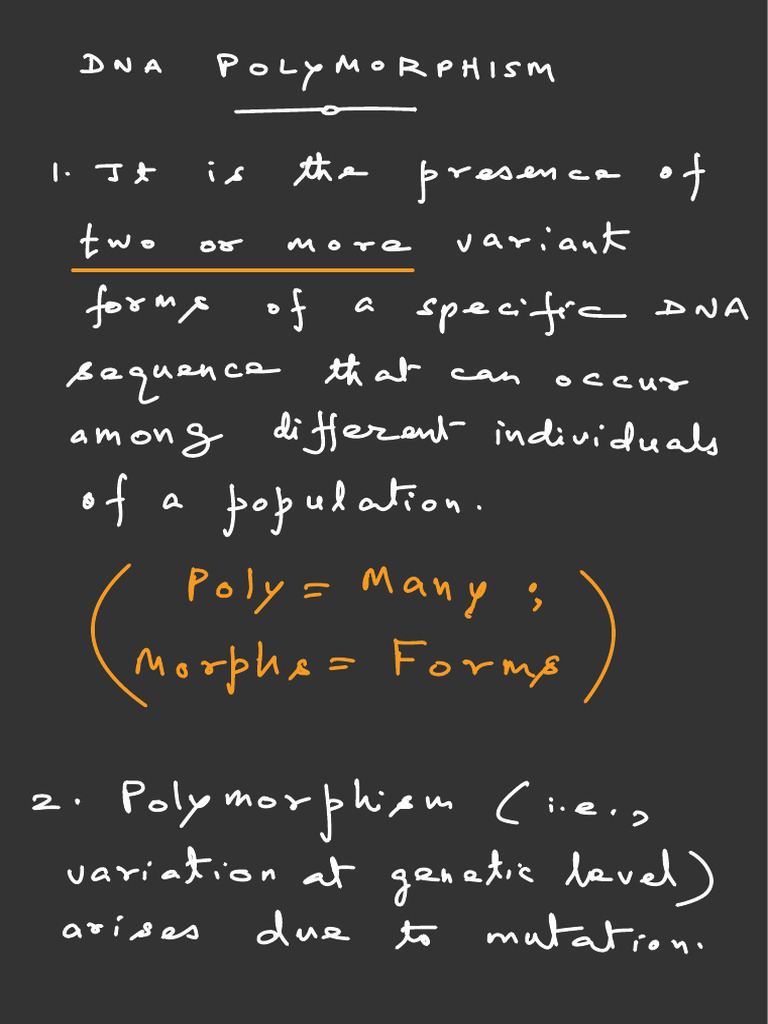 DNA POLYMORPHISM
1. It is the presence of
two or more variant
forms of a specific DNA
sequence that can occur
among different individuals
of a population.
(Poly = Many ;
Morphs = Forms)
2. Polymorphism (i.e.,
variation at genetic level)
arises due to mutation.